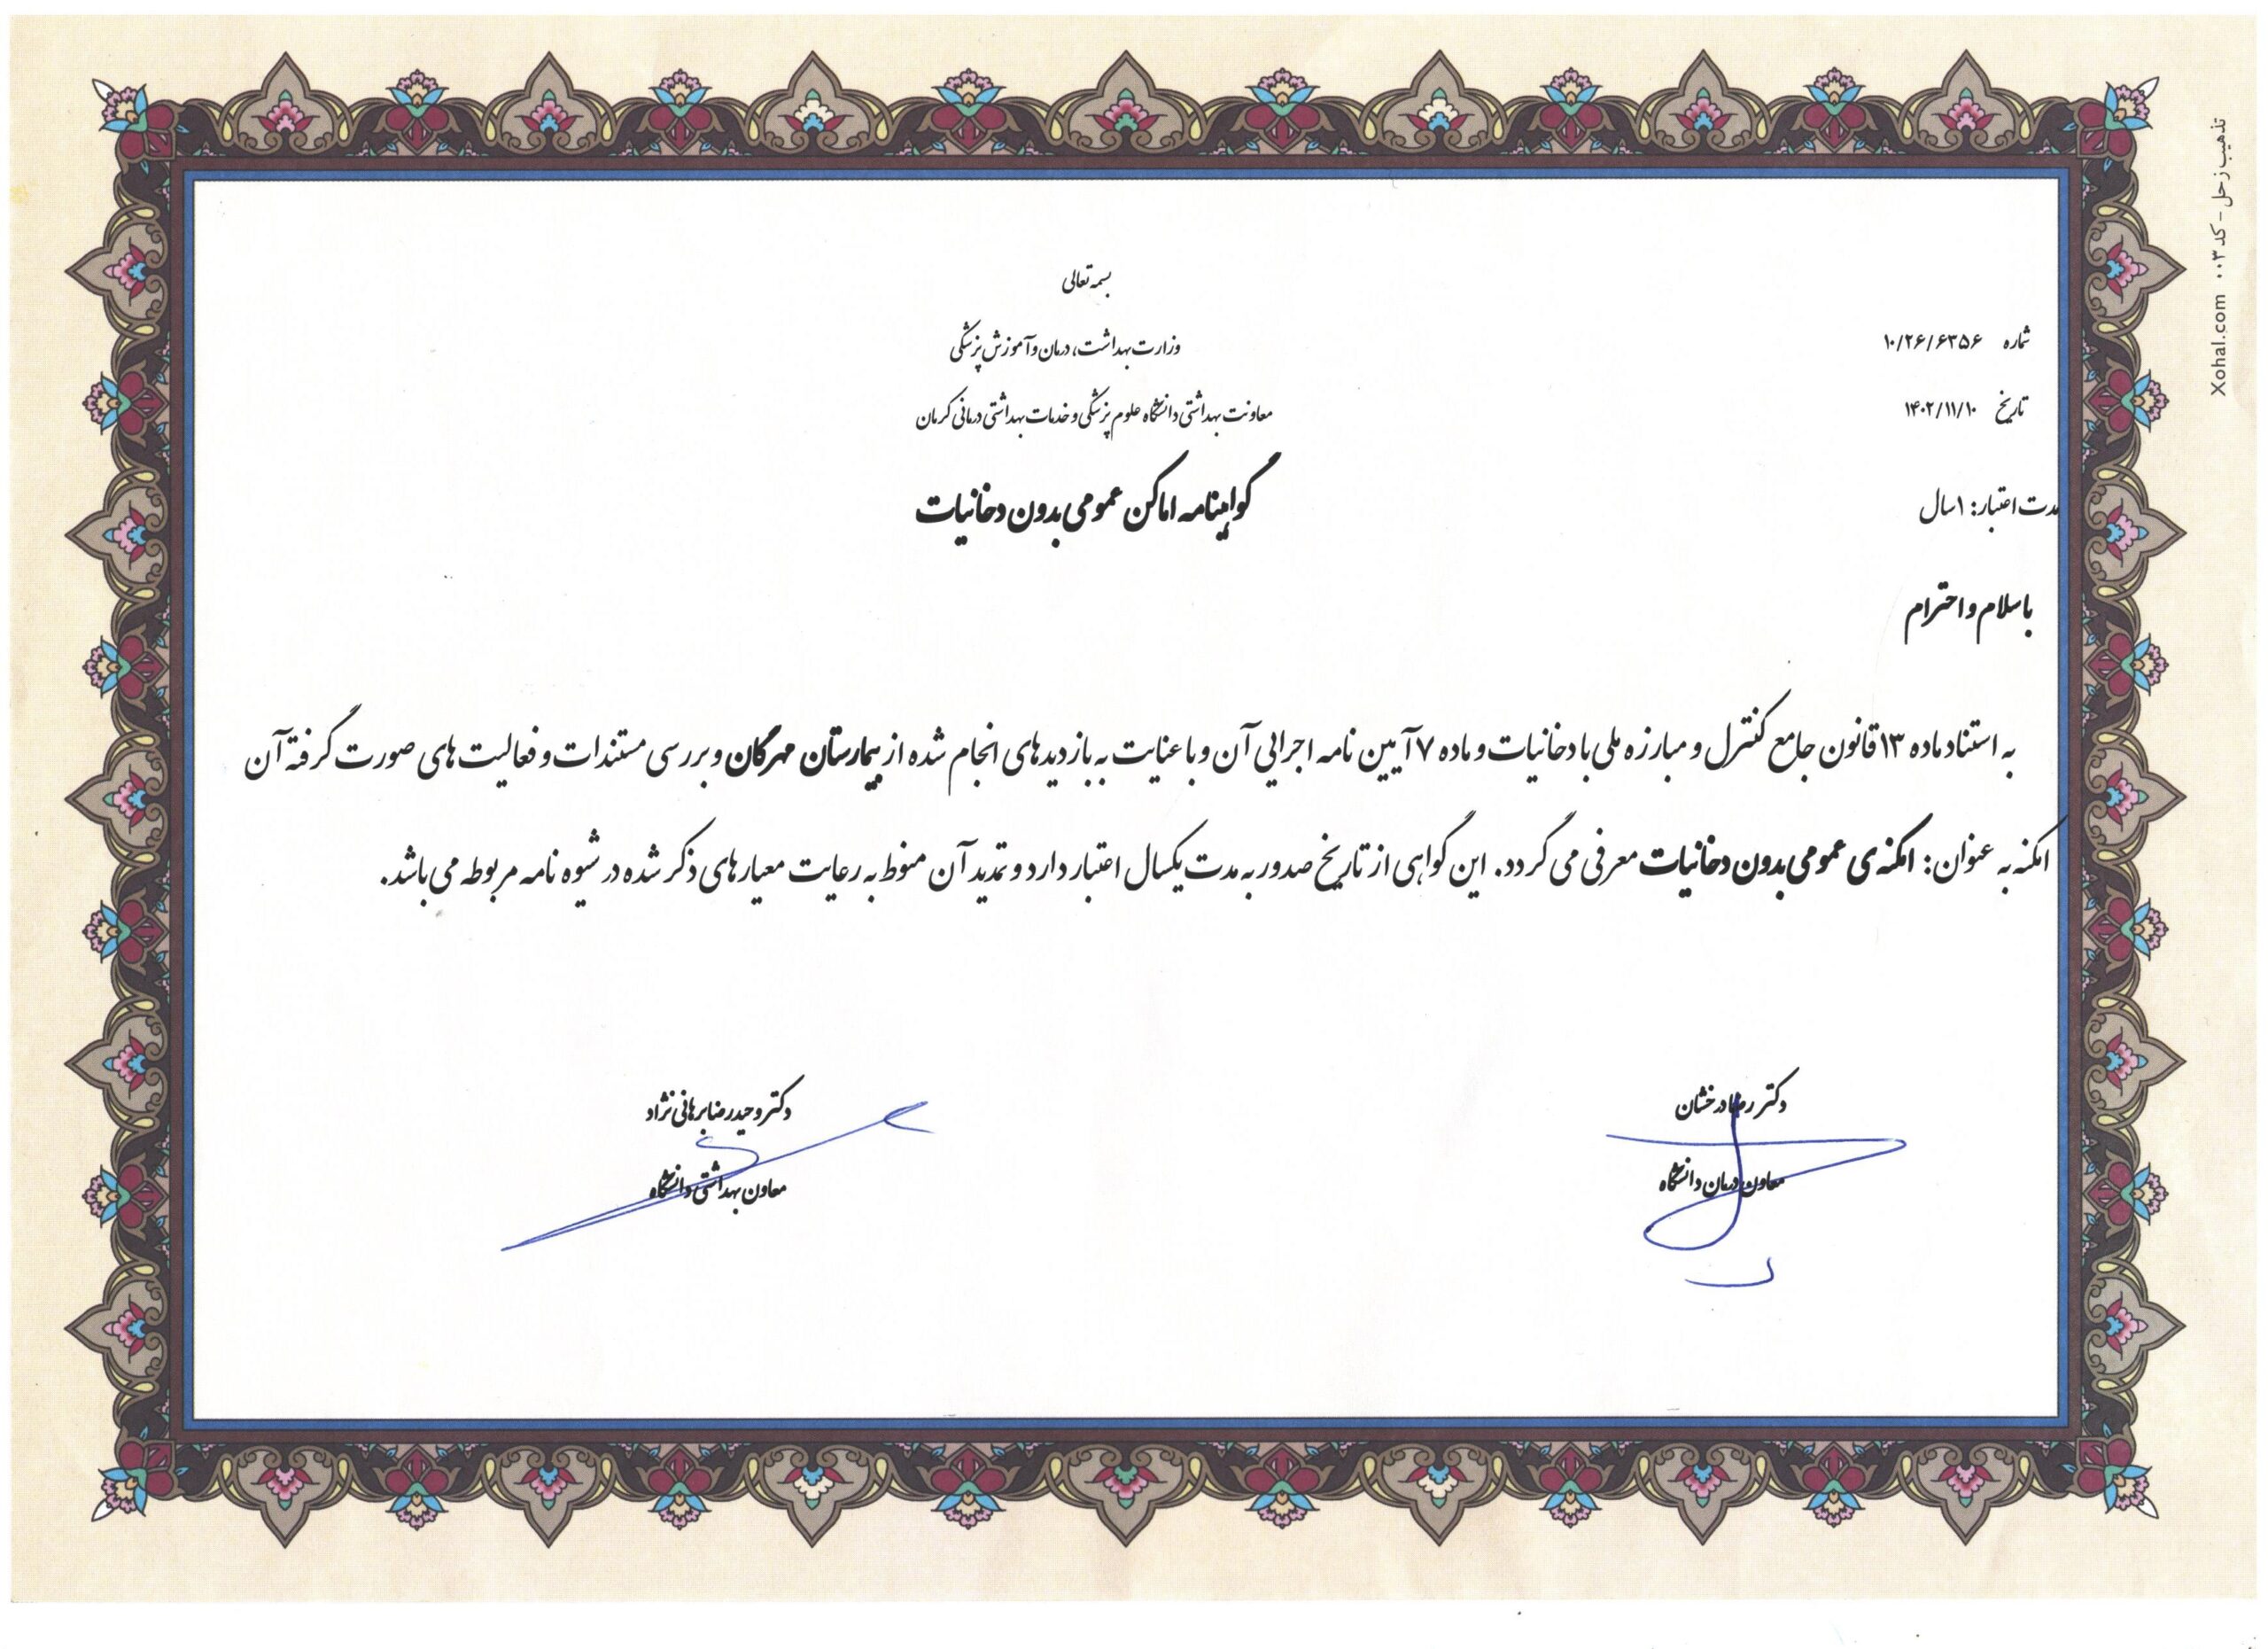 بسمه تعالی
وزارت بهداشت، درمان و آموزش پزشکی
معاونت بهداشتی دانشگاه علوم پزشکی و خدمات بهداشتی درمانی کرمان
گواهینامه اماکن عمومی بدون دخانیات
شماره ۱۰/۲۶/۶۳۵۶
تاریخ ۱۴۰۲/۱۱/۱۰
مدت اعتبار: ۱سال
با سلام و احترام
به استناد ماده ۱۳ قانون جامع کنترل و مبارزه ملی با دخانیات و ماده ۷ آیین نامه اجرایی آن و با عنایت به بازدیدهای انجام شده از بیمارستان مهرگان و بررسی مستندات و فعالیت های صورت گرفته آن
امکنه به عنوان: امکنه ی عمومی بدون دخانیات معرفی می گردد. این گواهی از تاریخ صدور به مدت یکسال اعتبار دارد و تمدید آن منوط به رعایت معیارهای ذکر شده در شیوه نامه مربوطه می باشد.
دکتر رضا درخشان
معاون درمان دانشگاه
دکتر وحیدرضا برهانی نژاد
معاون بهداشتی دانشگاه
تذهیب زحل - کد ۰۰۳ Xohal.com